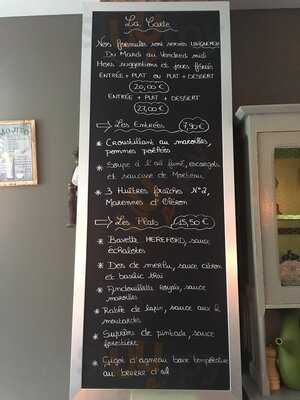 La Carte
Nos formules sont servies UNIQUEMENT
Du Mardi au Vendredi midi
Hors suggestions et jours fériés
ENTRÉE + PLAT OU PLAT + DESSERT
20,00 €
ENTRÉE + PLAT + DESSERT
27,00 €
Les Entrées 7,90 €
* Croustillant au maroilles,
pommes poêlées
* Soupe à l'ail fumé, escargots
et saucisse de Morteau
* 3 Huîtres fraîches N°2,
Marennes d'Oléron
Les Plats 15,50 €
* Bavette HEREFORD, sauce
échalotes
* Dos de merlu, sauce citron
et basilic thaï
* Andouillette royale, sauce
maroilles
* Râble de lapin, sauce aux 2
moutardes
* Suprême de pintade, sauce
forestière
* Gigot d'agneau basse température
au beurre d'ail